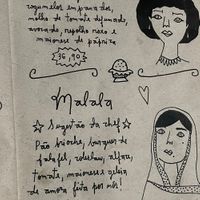 cogumelos em panados,
molho de tomate defumado,
avocado, repolho roxo e
maionese de páprica
36,90
Malala
Sugestão da chef
Pão brioche, burguer de
falafel, coleslaw, alface,
tomate, maionese e geleia
de amora feita por nós!